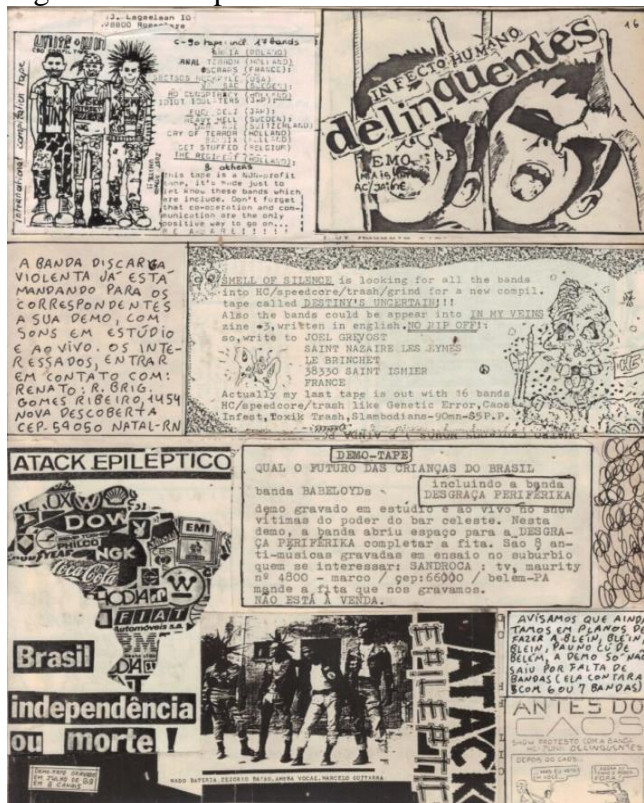 J. Lageslaan 10
C-90 tape: unil 17 bands
(POLAND)
ANAL TERROR (HOLLAND)
SCRAPS (FRANCE);
(USA)
(SWEDEN);
NO CONSPIRACY (HOLLAND)
(JAP);
(JAP);
HEAVY HELL (SWEDEN);
(SWITZERLAND)
CRY OF TERROR (HOLLAND)
(FINLAND)
GET STUFFED (BELGIUM)
& others
This tape is a NON-profit
tape, it's made just to
let know these bands which
are include. Don't forget
that co-operation and com-
munication are the only
positive way to go on...
international compilation tape
16
INFECTO HUMANO
delinquentes
DEMO TAPE
A BANDA DISCARGA
VIOLENTA JÁ ESTÁ
MANDANDO PARA OS
CORRESPONDENTES
A SUA DEMO, COM
SONS EM ESTÚDIO
E AO VIVO. OS INTE-
RESSADOS, ENTRAR
EM CONTATO COM:
RENATO: R. BRIG.
GOMES RIBEIRO, 1454
NOVA DESCOBERTA
CEP-59050 NATAL-RN
SMELL OF SILENCE is looking for all the bands
into HC/speedcore/trash/grind for a new compil.
tape called DESTINY'S UNCERTAIN!!!
Also the bands could be appear into IN MY VEINS
zine #3, written in english. NO RIP OFF!:
so, write to JOEL GREVOST
SAINT NAZAIRE LES EYMES
LE BRINCHET
38330 SAINT ISMIER
FRANCE
Actually my last tape is out with 16 bands
HC/speedcore/trash like Genetic Error, Caos
Infest, Toxik Trash, Slambodians-90mn-$5P.P.
ATACK EPILÉPTICO
DOW
PHILCO
NGK
EMI
CBS
Coca-Cola
FIAT
automóveis s.a.
3M
Brasil
independência
ou morte!
DEMO-TAPE GRAVADO
EM JULHO DE 88
EM 8 CANAIS
DEMO-TAPE
QUAL O FUTURO DAS CRIANÇAS DO BRASIL
banda BABELOYDs
incluindo a banda
DESGRAÇA PERIFÉRIKA
demo gravado em estúdio e ao vivo no show
vítimas do poder do bar celeste. Nesta
demo, a banda abriu espaço para a DESGRA-
ÇA PERIFÉRIKA completar a fita. Sao 8 an-
ti-musicas gravadas em ensaio no suburbio
quem se interessar: SANDROCA : tv, maurity
nº 4800 - marco / çep:66000 / belém-PA
mande a fita que nos gravamos.
NÃO ESTÁ À VENDA.
ATACK
EPILEPTIC
BATERIA. BAIXO. VOCAL. MARCELO GUITARRA
AVISAMOS QUE AINDA
TAMOS EM PLANOS DE
FAZER A BLEIN, BLEIN,
BLEIN, PAU NO CÚ DE
BELÉM, A DEMO SÓ NÃO
SAIU POR FALTA DE
BANDAS (ELA CONTARA
COM 6 OU 7 BANDAS)
ANTES DO
CAOS
SHOW PROTESTO COM A BANDA
HC-PUNK DELINQUENTES
DEPOIS DO CAOS...
FORA!